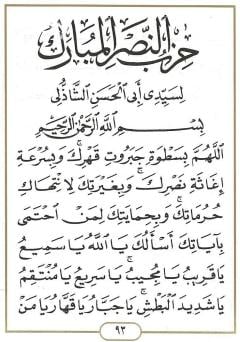 حِزْبُ النَّصْرِ المُبَارَك
لِسَيِّدِي أَبِي الْحَسَنِ الشَّاذُلِي
بِسْمِ اللَّهِ الرَّحْمَنِ الرَّحِيمِ
اللَّهُمَّ بِسَطْوَةِ جَبَرُوتِ قَهْرِكَ وَبِسُرْعَةِ
إِغَاثَةِ نَصْرِكَ وَبِغَيْرَتِكَ لِانْتِهَاكِ
حُرُمَاتِكَ وَبِحِمَايَتِكَ لِمَنِ احْتَمَى
بِآيَاتِكَ أَسْأَلُكَ يَا اللَّهُ يَا سَمِيعُ
يَا قَرِيبُ يَا مُجِيبُ يَا سَرِيعُ يَا مُنْتَقِمُ
يَا شَدِيدَ الْبَطْشِ يَا جَبَّارُ يَا قَهَّارُ يَا مَنْ
٩٣